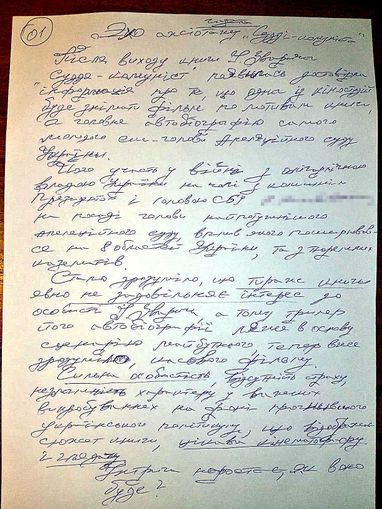 01
Эхо аксіотажу "Судді-комуніста"
Після виходу книги І. Зварича
"Суддя-комуніст" появилась достовірна
інформація про те, що одна із кіностудій
буде знімати фільм по мотивам книги
а головне автобіографію самого
молодого екс-голови Апеляційного суду
України.
Його участь у війні з олігархічною
владою України на чолі з колишнім
Президентом і головою СБУ
на посаді голови наймогутнішого
апеляційного суду, вплив якого поширював-
ся на 8 областей України, та з
Стало зрозуміло, що тираж книги
явно не задовільняє інтерес до
особисті І. Зварича, а тому трилер
його автобіографії ляже в основу
сценарію майбутнього тепер вже
зрозуміло, масового фільму.
Сильна особистість, відсутність страху,
незламність характеру у важких
випробуваннях на фоні прогнившого
українського політикуму, що відображає
сюжет книги, цікава кінематографу
і глядачу
Інтрига наростає, як воно
буде?